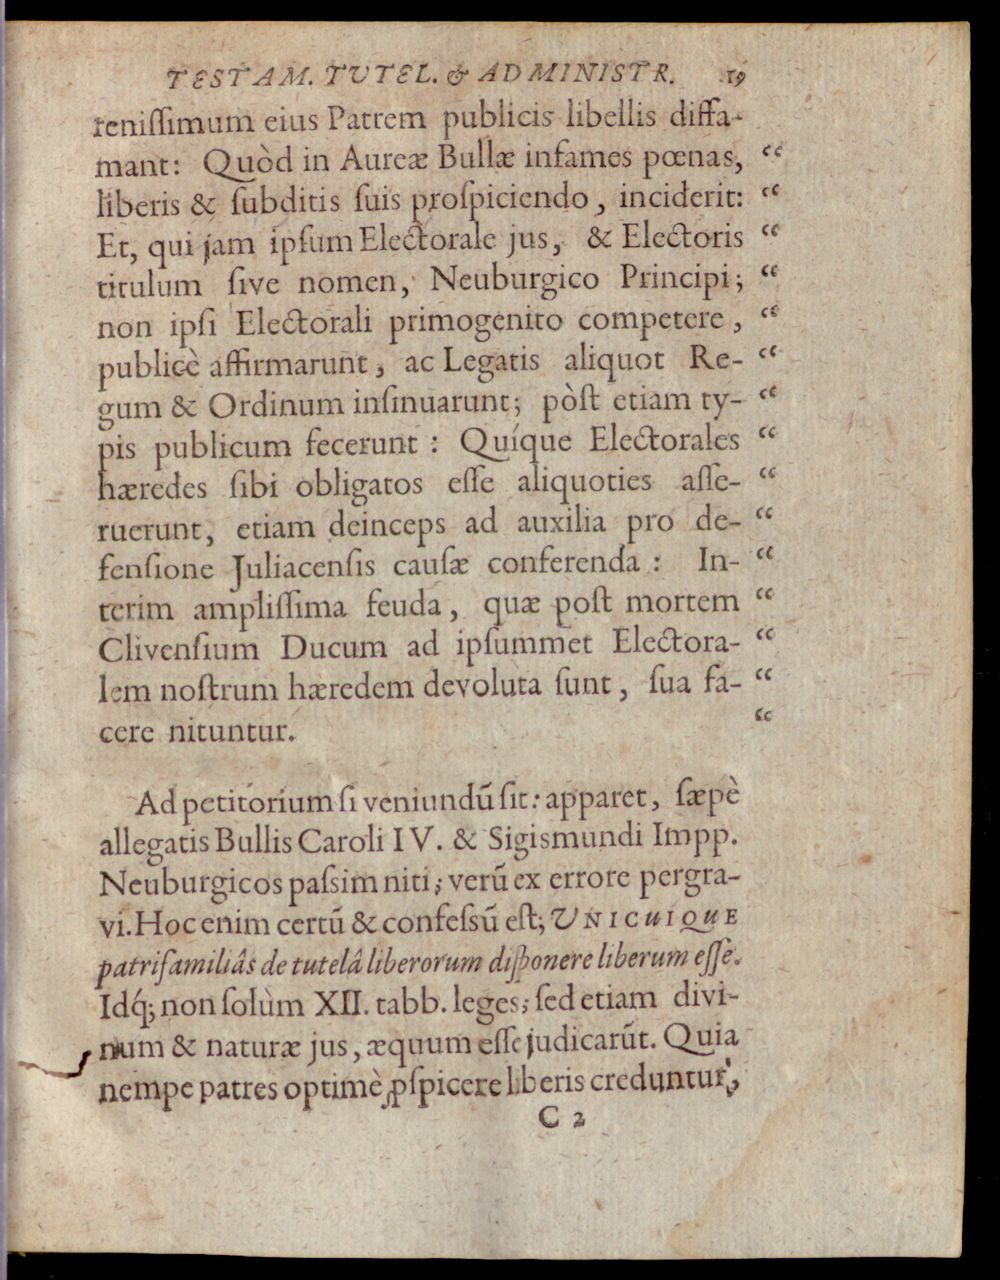 TESTAM. TVTEL. & ADMINISTR. 19
renissimum eius Patrem publicis libellis diffa-
mant: Quòd in Aureæ Bullæ infames pœnas, “
liberis & subditis suis prospiciendo, inciderit: “
Et, qui jam ipsum Electorale jus, & Electoris “
titulum sive nomen, Neuburgico Principi; “
non ipsi Electorali primogenito competere, “
publicè affirmarunt, ac Legatis aliquot Re- “
gum & Ordinum insinuarunt; pòst etiam ty- “
pis publicum fecerunt: Quíque Electorales “
hæredes sibi obligatos esse aliquoties asse- “
ruerunt, etiam deinceps ad auxilia pro de- “
fensione Juliacensis causæ conferenda: In- “
terim amplissima feuda, quæ post mortem “
Clivensium Ducum ad ipsummet Electora- “
lem nostrum hæredem devoluta sunt, sua fa- “
cere nituntur. “
Ad petitorium si veniundū sit: apparet, sæpè
allegatis Bullis Caroli IV. & Sigismundi Impp.
Neuburgicos passim niti; verū ex errore pergra-
vi. Hoc enim certū & confessū est; UNICUIQUE
patrifamiliâs de tutelâ liberorum disponere liberum esse.
Idq́; non solùm XII. tabb. leges; sed etiam divi-
num & naturæ jus, æquum esse judicarūt. Quia
nempe patres optimè ꝓspicere liberis creduntur,
C 2